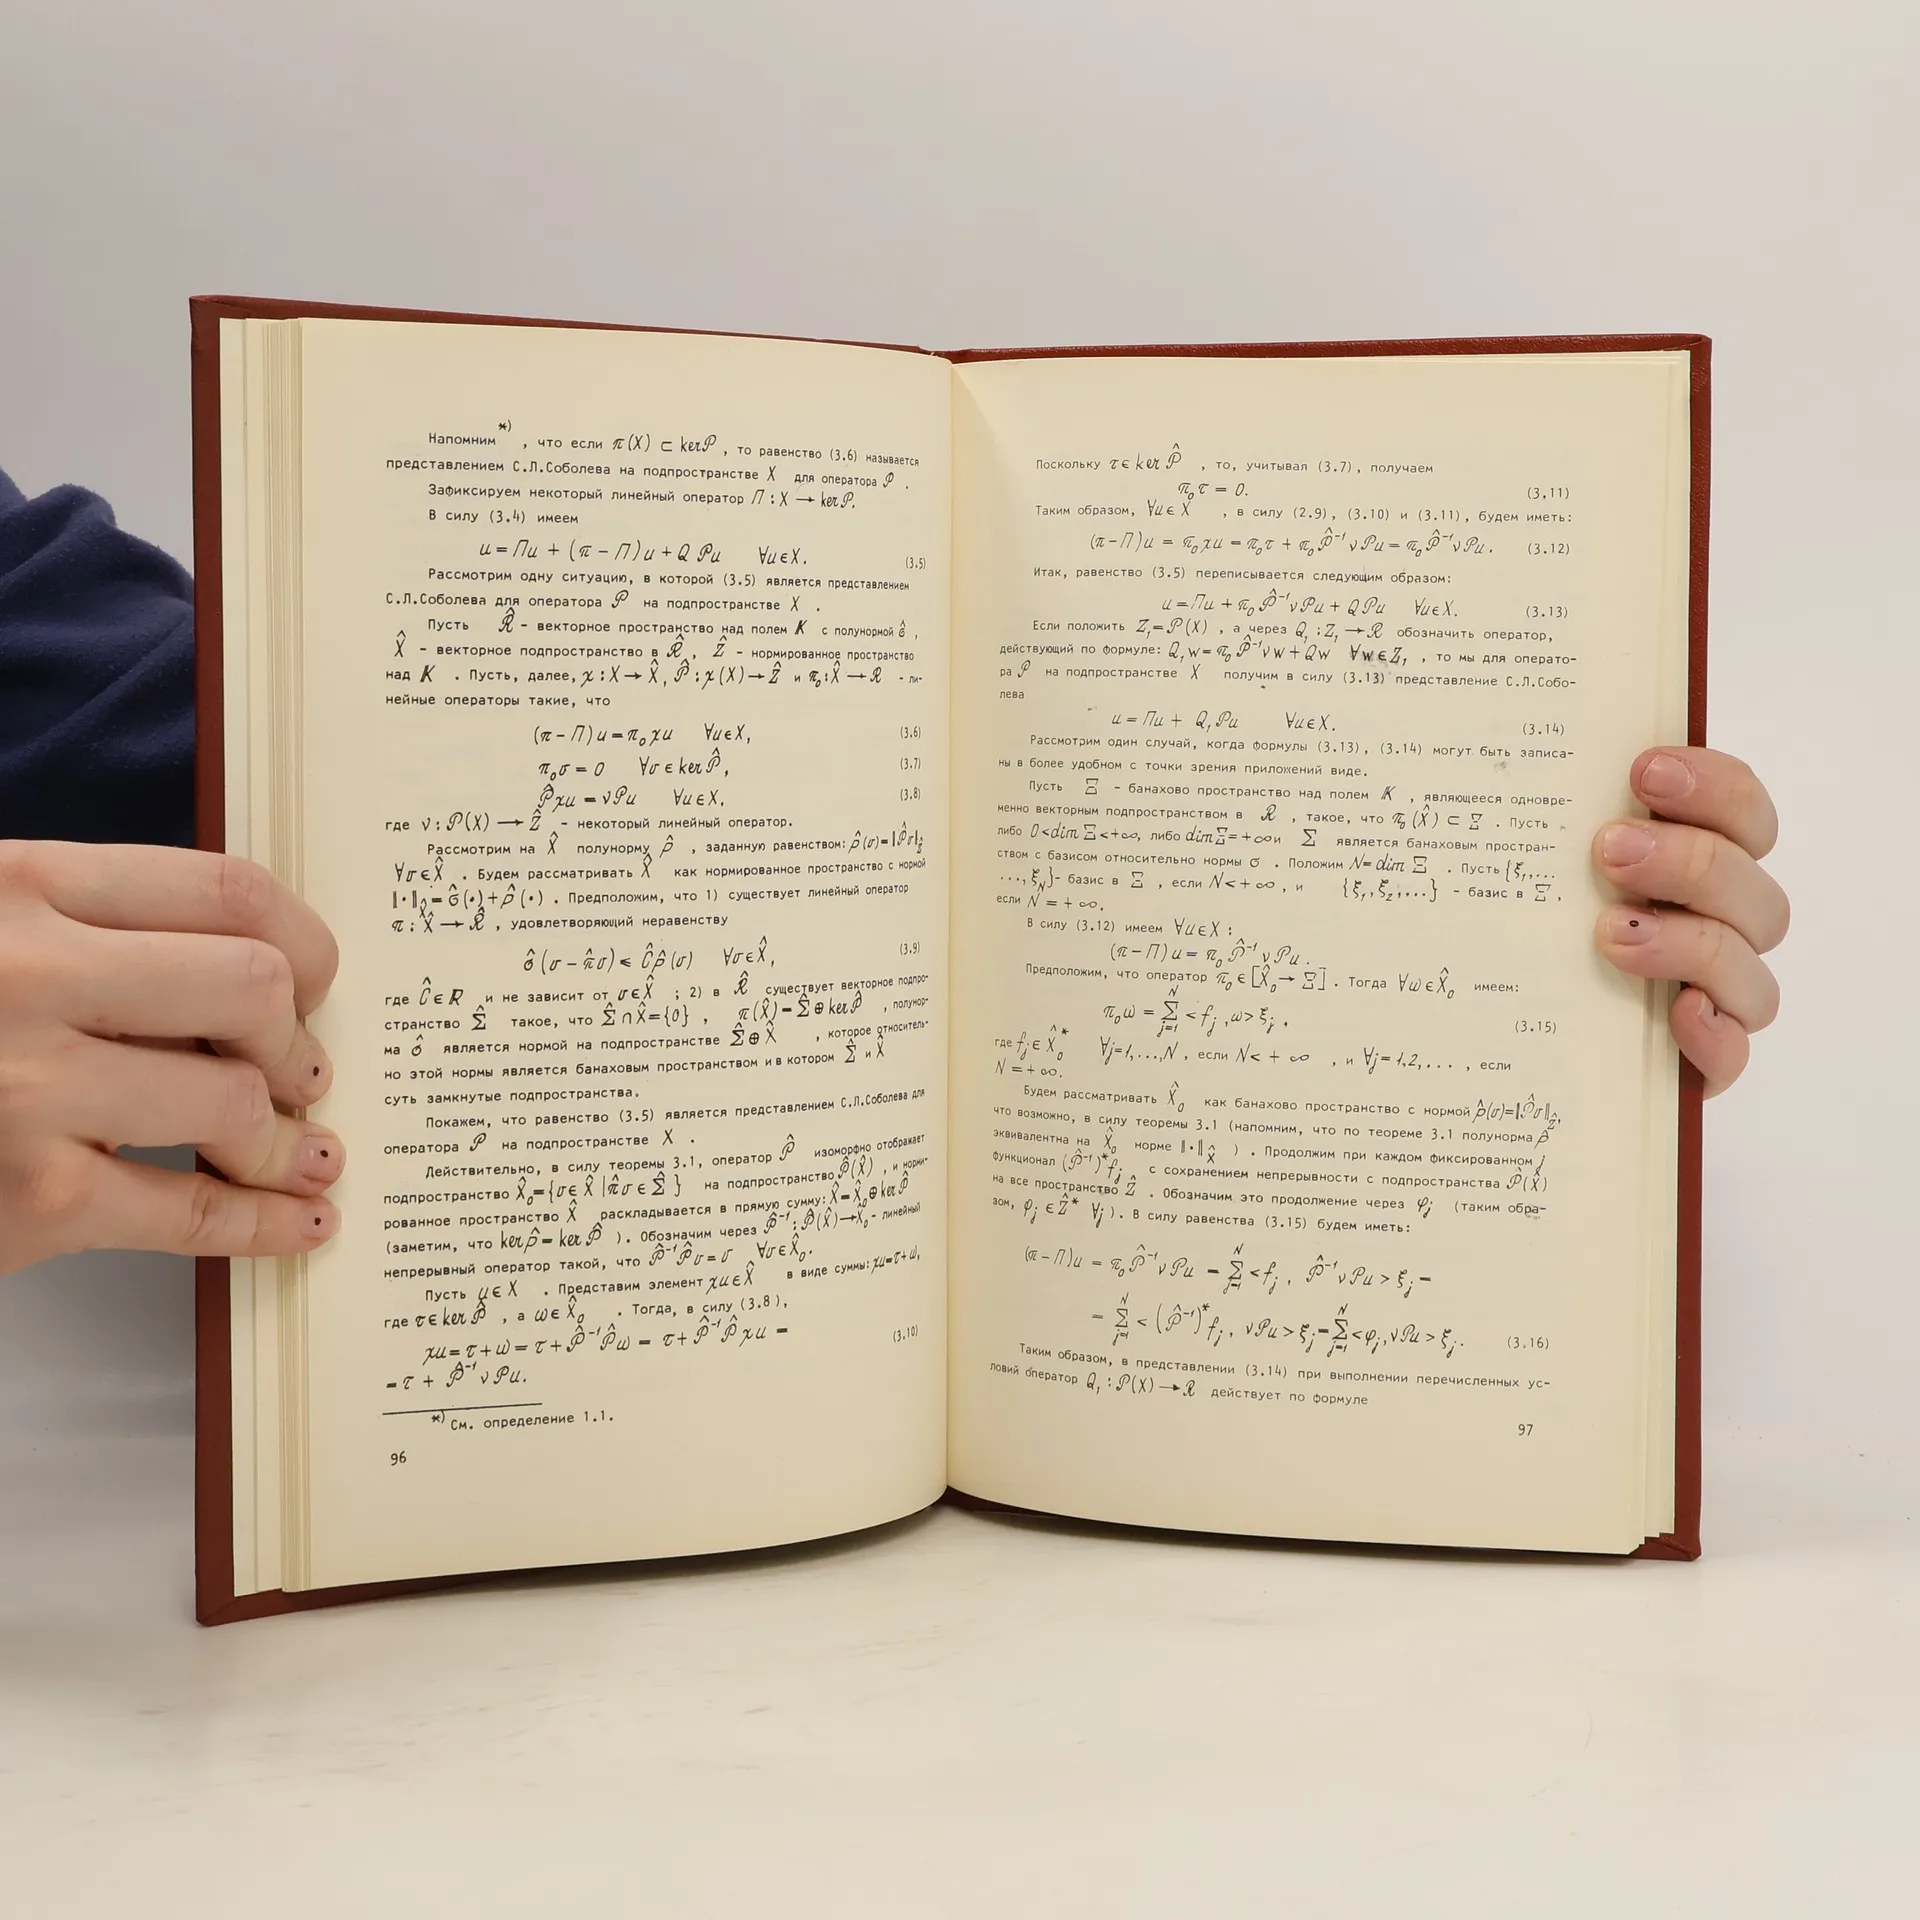 Напомним *) , что если π(X) ⊂ ker𝒫 , то равенство (3.6) называется
представлением С.Л.Соболева на подпространстве X для оператора 𝒫 .
Зафиксируем некоторый линейный оператор Π : X → ker𝒫.
В силу (3.4) имеем
u = Πu + (π − Π)u + Q𝒫u ∀u∈X. (3.5)
Рассмотрим одну ситуацию, в которой (3.5) является представлением
С.Л.Соболева для оператора 𝒫 на подпространстве X .
Пусть ℛ̂ - векторное пространство над полем K с полунормой σ̂ ,
X̂ - векторное подпространство в ℛ̂ , Ẑ - нормированное пространство
над K . Пусть, далее, χ : X → X̂ , 𝒫̂ : χ(X) → Ẑ и π₀ : X̂ → ℛ - ли-
нейные операторы такие, что
(π − Π)u = π₀χu ∀u∈X, (3.6)
π₀v = 0 ∀v∈ker𝒫̂, (3.7)
𝒫̂χu = ν𝒫u ∀u∈X, (3.8)
где ν : 𝒫(X) → Ẑ - некоторый линейный оператор.
Рассмотрим на X̂ полунорму p̂ , заданную равенством: p̂(v) = ‖𝒫̂v‖_Ẑ
∀v∈X̂ . Будем рассматривать X̂ как нормированное пространство с нормой
‖·‖_X̂ = σ̂(·) + p̂(·) . Предположим, что 1) существует линейный оператор
π̂ : X̂ → ℛ̂ , удовлетворяющий неравенству
σ̂(v − π̂v) ⩽ Ĉp̂(v) ∀v∈X̂, (3.9)
где Ĉ∈R и не зависит от v∈X̂ ; 2) в ℛ̂ существует векторное подпро-
странство Σ̂ такое, что Σ̂∩X̂={0} , π̂(X̂) = Σ̂ ⊕ ker𝒫̂ , полунор-
ма σ̂ является нормой на подпространстве Σ̂ ⊕ X̂ , которое относитель-
но этой нормы является банаховым пространством и в котором Σ̂ и X̂
суть замкнутые подпространства.
Покажем, что равенство (3.5) является представлением С.Л.Соболева для
оператора 𝒫 на подпространстве X .
Действительно, в силу теоремы 3.1, оператор 𝒫̂ изоморфно отображает
подпространство X̂₀={v∈X̂ | π̂v∈Σ̂} на подпространство 𝒫̂(X̂) , и норми-
рованное пространство X̂ раскладывается в прямую сумму: X̂ = X̂₀ ⊕ ker𝒫̂
(заметим, что ker p̂ = ker𝒫̂ ). Обозначим через 𝒫̂⁻¹ : 𝒫̂(X̂) → X̂₀ - линейный
непрерывный оператор такой, что 𝒫̂⁻¹𝒫̂v = v ∀v∈X̂₀.
Пусть u∈X . Представим элемент χu∈X̂ в виде суммы: χu=τ+ω,
где τ∈ker𝒫̂ , а ω∈X̂₀ . Тогда, в силу (3.8),
χu = τ + ω = τ + 𝒫̂⁻¹𝒫̂ω = τ + 𝒫̂⁻¹𝒫̂χu = (3.10)
= τ + 𝒫̂⁻¹ν𝒫u.
*) См. определение 1.1.
96
Поскольку τ∈ker𝒫̂ , то, учитывая (3.7), получаем
π₀τ = 0. (3.11)
Таким образом, ∀u∈X , в силу (2.9), (3.10) и (3.11), будем иметь:
(π−Π)u = π₀χu = π₀τ + π₀𝒫̂⁻¹ν𝒫u = π₀𝒫̂⁻¹ν𝒫u. (3.12)
Итак, равенство (3.5) переписывается следующим образом:
u = Πu + π₀𝒫̂⁻¹ν𝒫u + Q𝒫u ∀u∈X. (3.13)
Если положить Z₁=𝒫(X) , а через Q₁ : Z₁ → ℛ обозначить оператор,
действующий по формуле: Q₁w = π₀𝒫̂⁻¹νw + Qw ∀w∈Z₁ , то мы для операто-
ра 𝒫 на подпространстве X получим в силу (3.13) представление С.Л.Собо-
лева
u = Πu + Q₁𝒫u ∀u∈X. (3.14)
Рассмотрим один случай, когда формулы (3.13), (3.14) могут быть записа-
ны в более удобном с точки зрения приложений виде.
Пусть Ξ - банахово пространство над полем K , являющееся одновре-
менно векторным подпространством в ℛ , такое, что π₀(X̂) ⊂ Ξ . Пусть
либо 0<dim Ξ<+∞, либо dim Ξ=+∞ и Σ является банаховым простран-
ством с базисом относительно нормы σ . Положим N = dim Ξ . Пусть {ξ₁,...
...,ξ_N}- базис в Ξ , если N<+∞ , и {ξ₁,ξ₂,...} - базис в Ξ ,
если N = +∞.
В силу (3.12) имеем ∀u∈X :
(π−Π)u = π₀𝒫̂⁻¹ν𝒫u .
Предположим, что оператор π₀∈[X̂₀ → Ξ] . Тогда ∀ω∈X̂₀ имеем:
π₀ω = ∑_{j=1}^{N} <f_j , ω> ξ_j , (3.15)
где f_j∈X̂₀* ∀j=1,...,N , если N<+∞ , и ∀j=1,2,... , если
N = +∞.
Будем рассматривать X̂₀ как банахово пространство с нормой p̂(v)=‖𝒫̂v‖_Ẑ,
что возможно, в силу теоремы 3.1 (напомним, что по теореме 3.1 полунорма p̂
эквивалентна на X̂₀ норме ‖·‖_X̂ ) . Продолжим при каждом фиксированном j
функционал (𝒫̂⁻¹)*f_j с сохранением непрерывности с подпространства 𝒫̂(X̂)
на все пространство Ẑ . Обозначим это продолжение через φ_j (таким обра-
зом, φ_j∈Ẑ* ∀j ). В силу равенства (3.15) будем иметь:
(π−Π)u = π₀𝒫̂⁻¹ν𝒫u = ∑_{j=1}^{N} <f_j , 𝒫̂⁻¹ν𝒫u> ξ_j =
= ∑_{j=1}^{N} <(𝒫̂⁻¹)*f_j , ν𝒫u> ξ_j = ∑_{j=1}^{N} <φ_j , ν𝒫u> ξ_j. (3.16)
Таким образом, в представлении (3.14) при выполнении перечисленных ус-
ловий оператор Q₁ : 𝒫(X) → ℛ действует по формуле
97